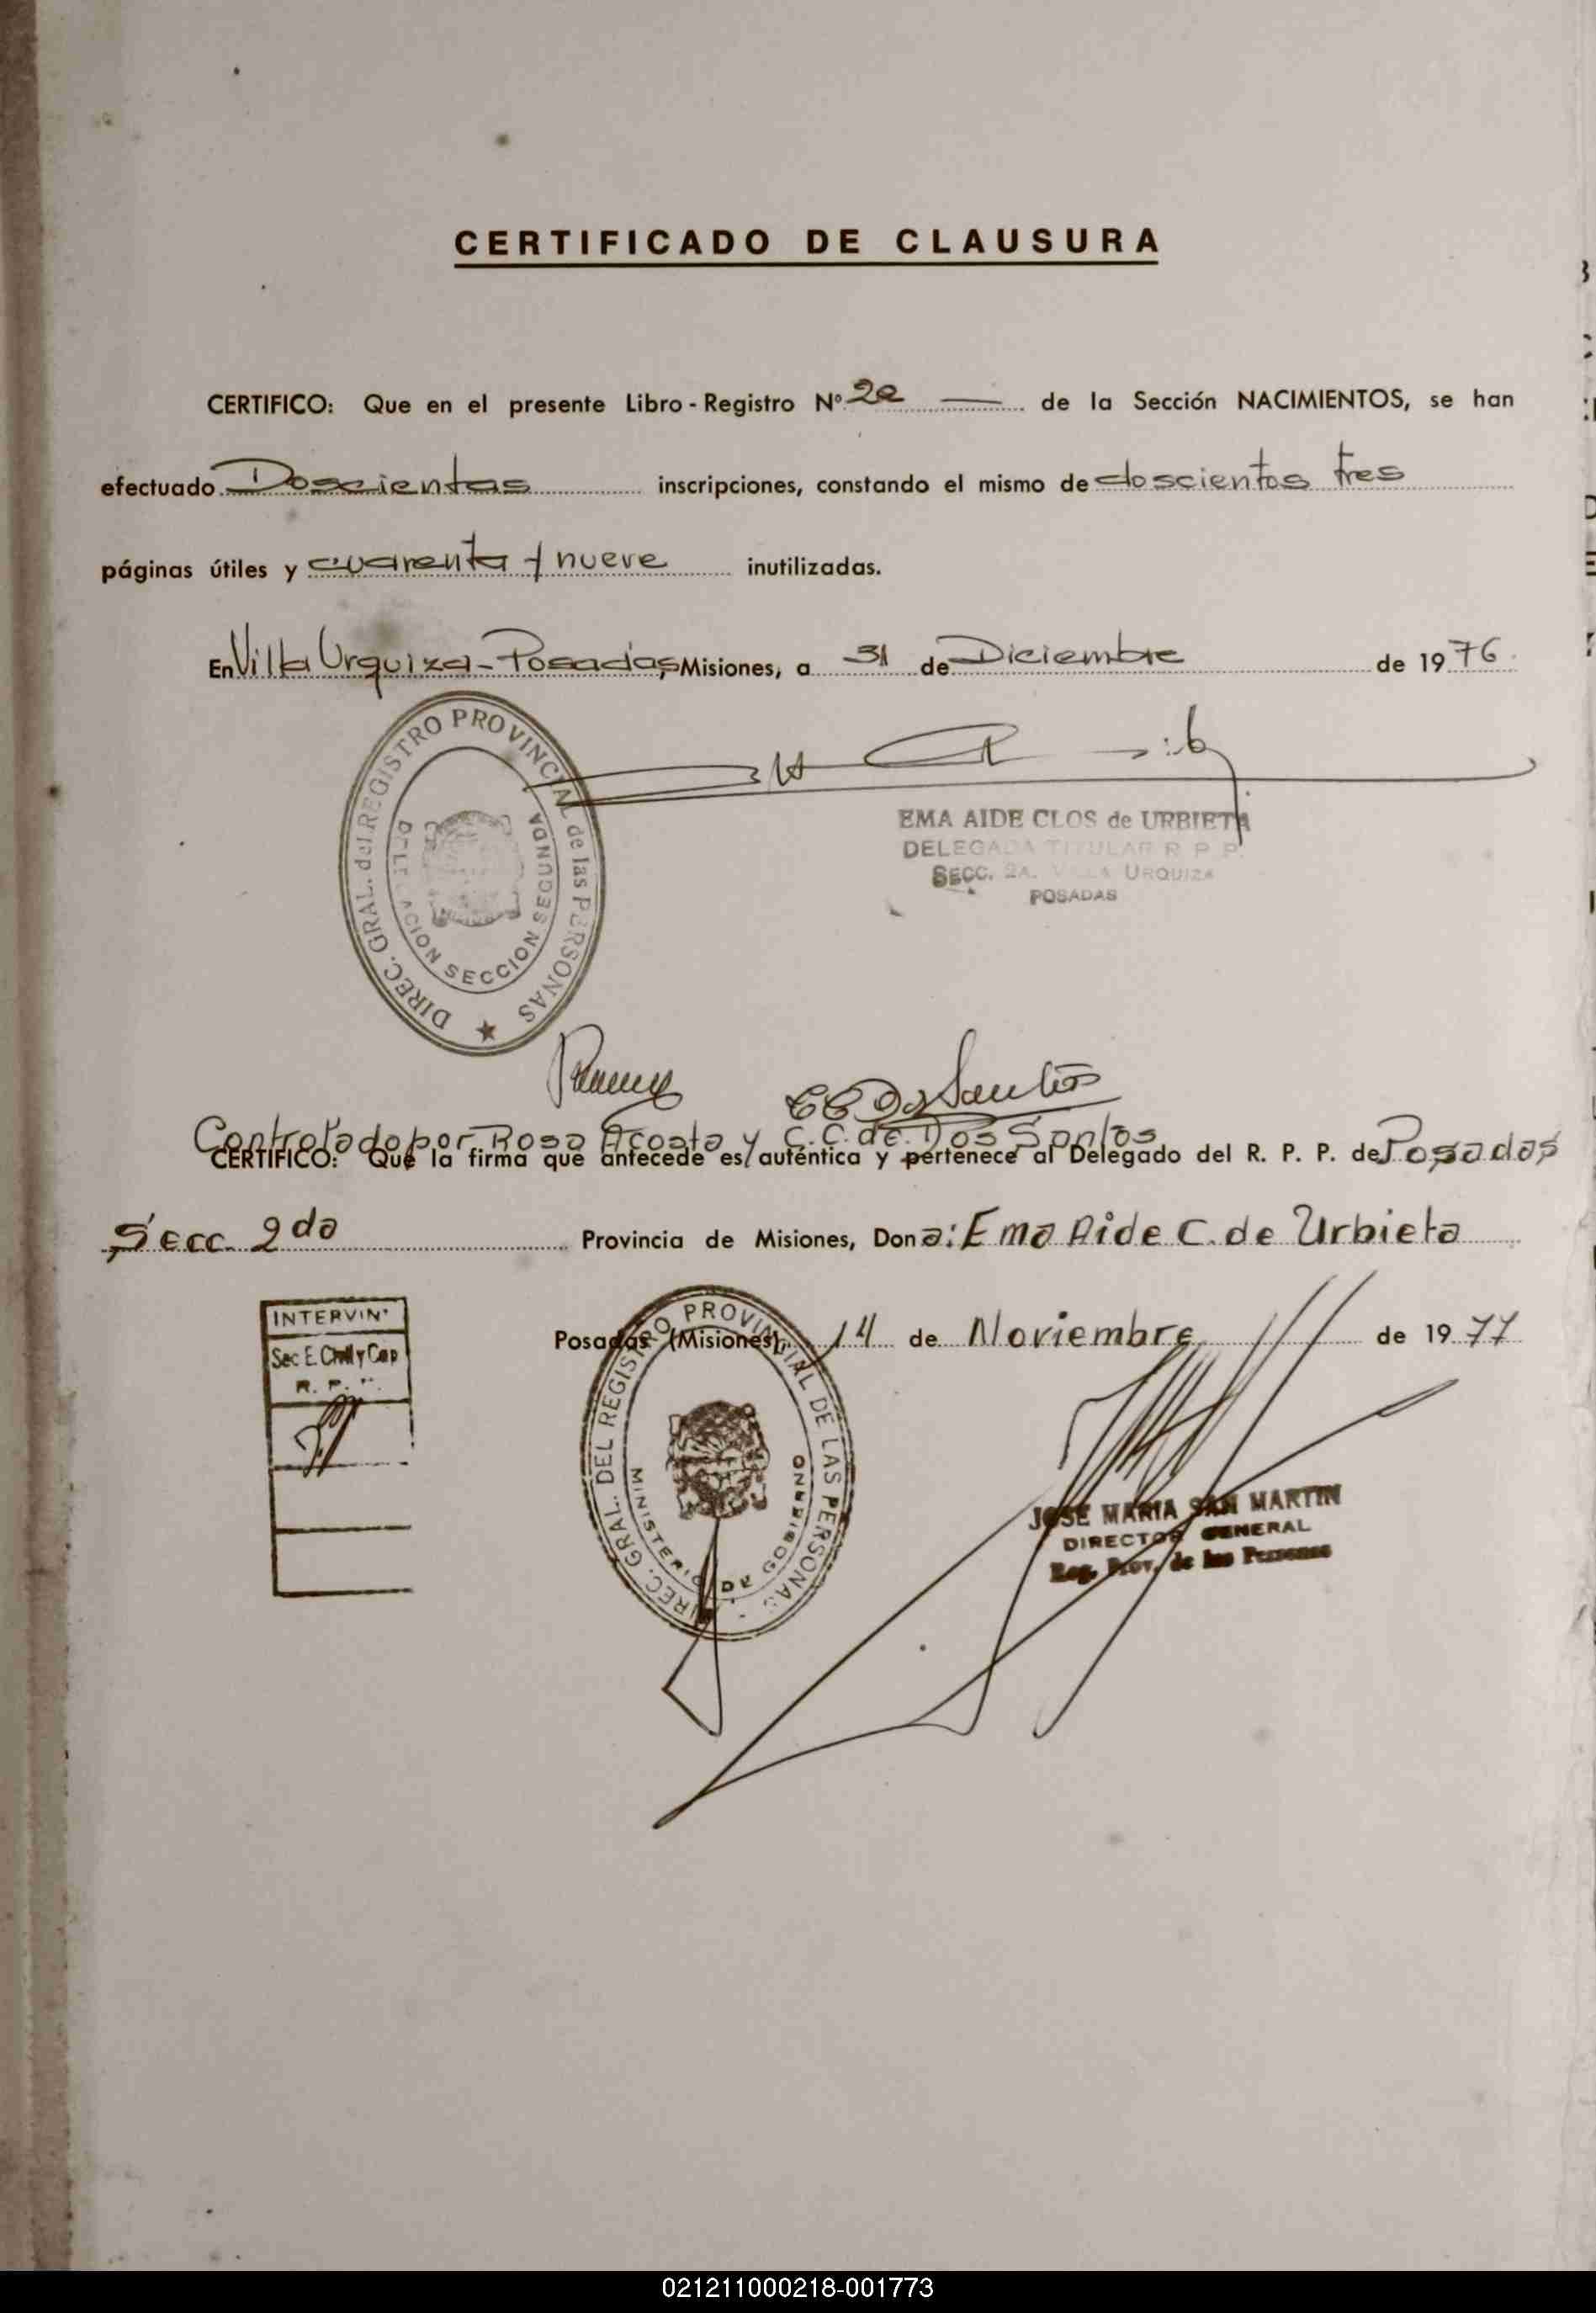 CERTIFICADO DE CLAUSURA
CERTIFICO: Que en el presente Libro-Registro Nº 2e — de la Sección NACIMIENTOS, se han
efectuado Doscientas inscripciones, constando el mismo de doscientos tres
páginas útiles y cuarenta y nueve inutilizadas.
En Villa Urquiza - Posadas, Misiones, a 31 de Diciembre de 1976
DIREC. GRAL. del REGISTRO PROVINCIAL de las PERSONAS
DELEGACION SECCION SEGUNDA
EMA AIDE CLOS de URBIETA
DELEGADA TITULAR R P P.
SECC. 2A. VILLA URQUIZA
POSADAS
C C Dos Santos
Controlado por Rosa Acosta y C.C. de Dos Santos
CERTIFICO: Que la firma que antecede es auténtica y pertenece al Delegado del R. P. P. de Posadas
Secc. 2da Provincia de Misiones, Dona: Ema Aide C. de Urbieta
Posadas (Misiones), 14 de Noviembre de 1977
INTERVINº
Sec E. Civil y Cap
R. P.
DIREC. GRAL. DEL REGISTRO PROVINCIAL DE LAS PERSONAS
MINISTERIO DE GOBIERNO
JOSE MARIA SAN MARTIN
DIRECTOR GENERAL
Reg. Prov. de las Personas
021211000218-001773